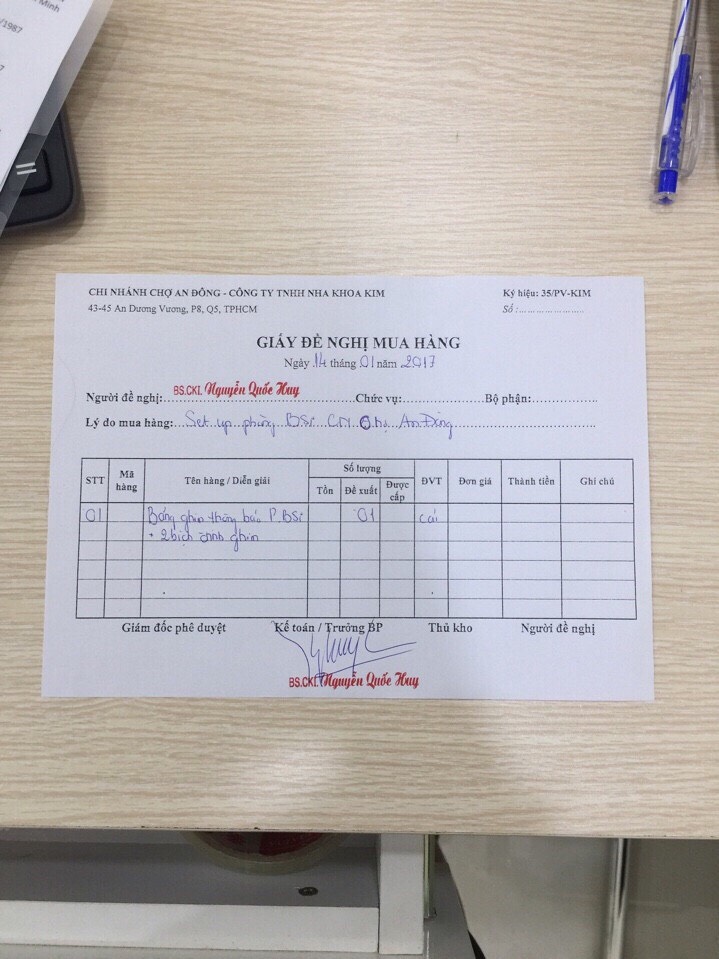 Minh
/1987
7
CHI NHÁNH CHỢ AN ĐÔNG - CÔNG TY TNHH NHA KHOA KIM
Ký hiệu: 35/PV-KIM
43-45 An Dương Vương, P8, Q5, TPHCM
Số :........................
GIẤY ĐỀ NGHỊ MUA HÀNG
Ngày 14 tháng 01 năm 2017
Người đề nghị: BS.CKI. Nguyễn Quốc Huy Chức vụ: Bộ phận:
Lý do mua hàng: Set up phòng BSĩ CN Chợ An Đông
STT Mã hàng Tên hàng / Diễn giải Số lượng ĐVT Đơn giá Thành tiền Ghi chú
Tồn Đề xuất Được cấp
01 Bảng ghim thông báo P.BSĩ 01 cái
+ 2 bịch đinh ghim
Giám đốc phê duyệt Kế toán / Trưởng BP Thủ kho Người đề nghị
BS.CKI. Nguyễn Quốc Huy